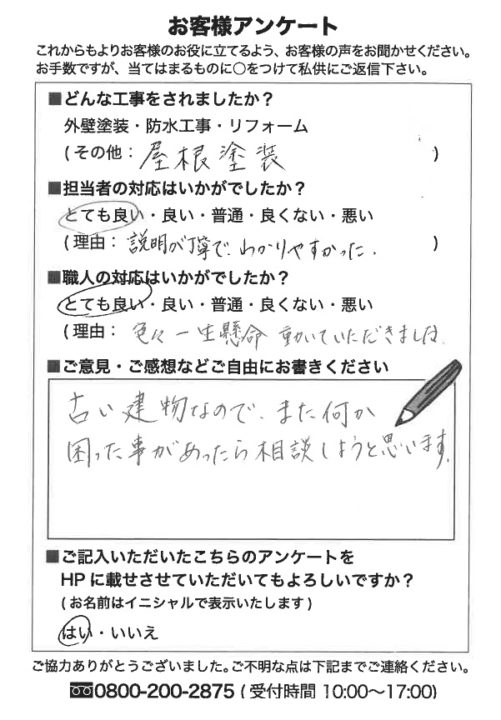 お客様アンケート
これからもよりお客様のお役に立てるよう、お客様の声をお聞かせください。
お手数ですが、当てはまるものに○をつけて私供にご返信下さい。
■どんな工事をされましたか？
外壁塗装・防水工事・リフォーム
(その他： 屋根塗装 )
■担当者の対応はいかがでしたか？
とても良い・良い・普通・良くない・悪い
(理由： 説明が丁寧で、わかりやすかった. )
■職人の対応はいかがでしたか？
とても良い・良い・普通・良くない・悪い
(理由： 色々一生懸命 動いていただきました.
■ご意見・ご感想などご自由にお書きください
古い建物なので、また何か
困った事があったら相談しようと思います.
■ご記入いただいたこちらのアンケートを
HPに載せさせていただいてもよろしいですか？
(お名前はイニシャルで表示いたします)
はい・いいえ
ご協力ありがとうございました。ご不明な点は下記までご連絡ください。
0800-200-2875 (受付時間 10:00〜17:00)